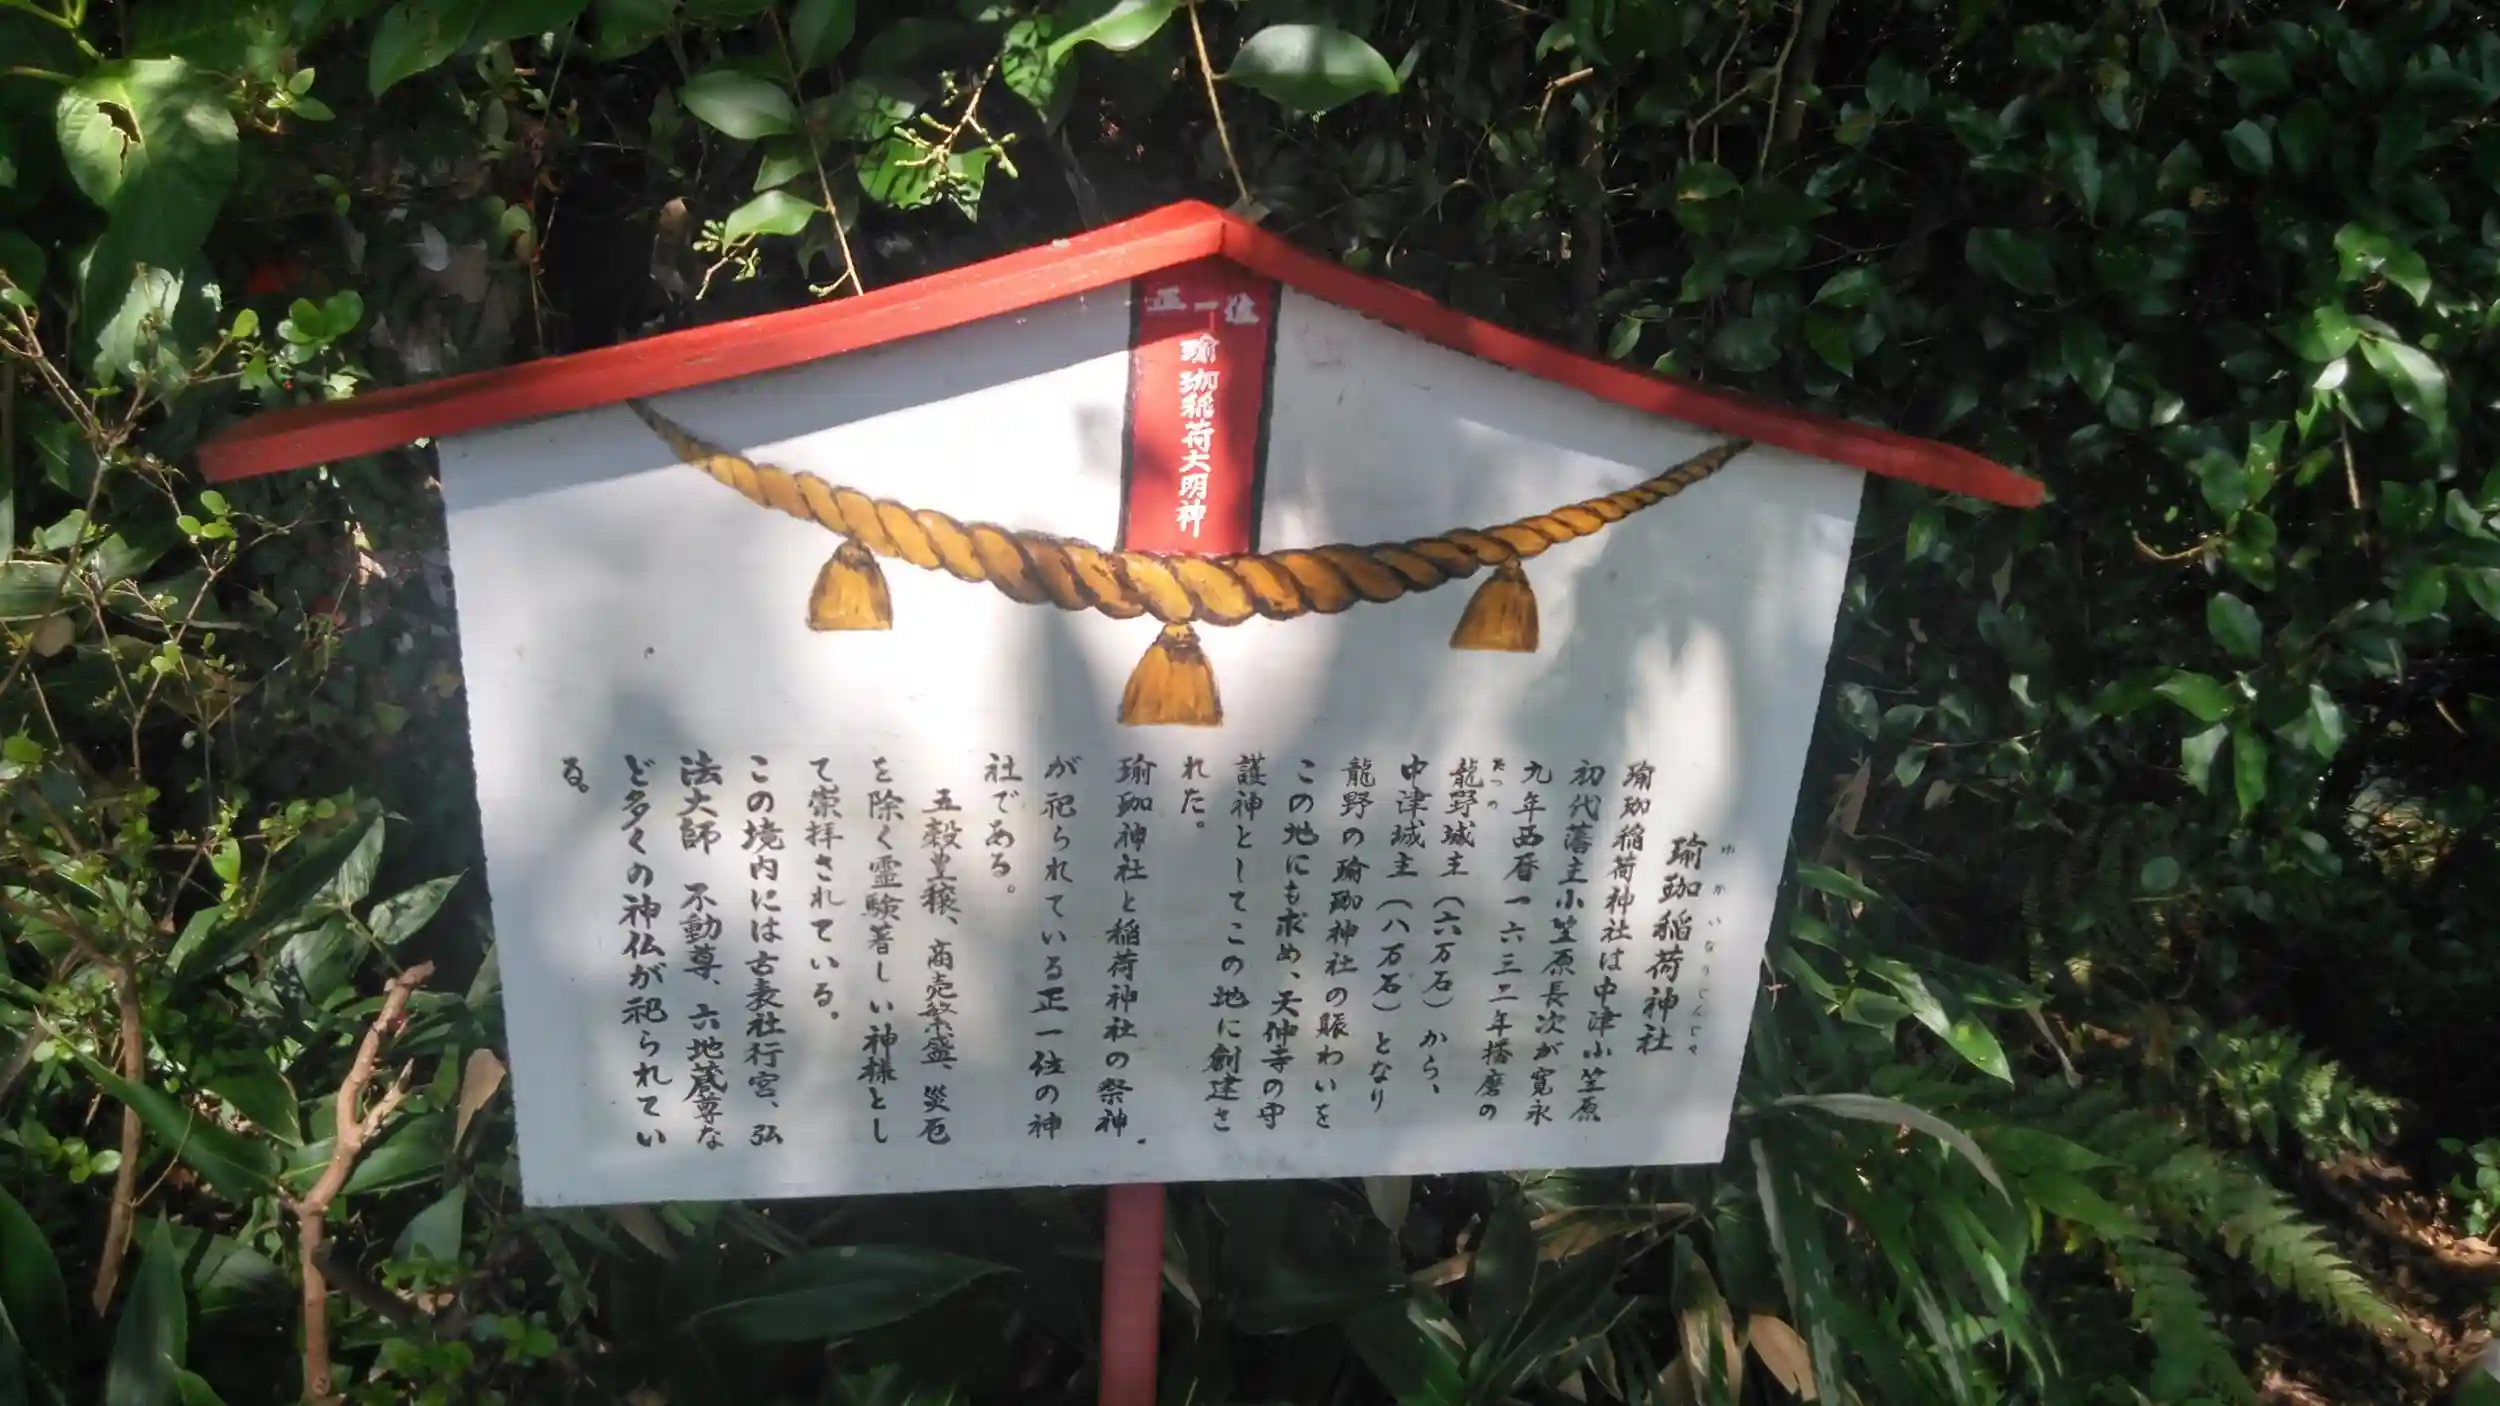 正一位
瑜珈稲荷大明神
ゆかいなりじんじゃ
瑜珈稲荷神社
瑜珈稲荷神社は中津小笠原
初代藩主小笠原長次が寛永
九年西暦一六三二年播磨の
たつの
龍野城主（六万石）から、
中津城主（八万石）となり
龍野の瑜珈神社の賑わいを
この地にも求め、天仲寺の守
護神としてこの地に創建さ
れた。
瑜珈神社と稲荷神社の祭神
が祀られている正一位の神
社である。
五穀豊穣、商売繁盛、災厄
を除く霊験著しい神様とし
て崇拝されている。
この境内には古表社行宮、弘
法大師 不動尊、六地蔵尊な
ど多くの神仏が祀られてい
る。